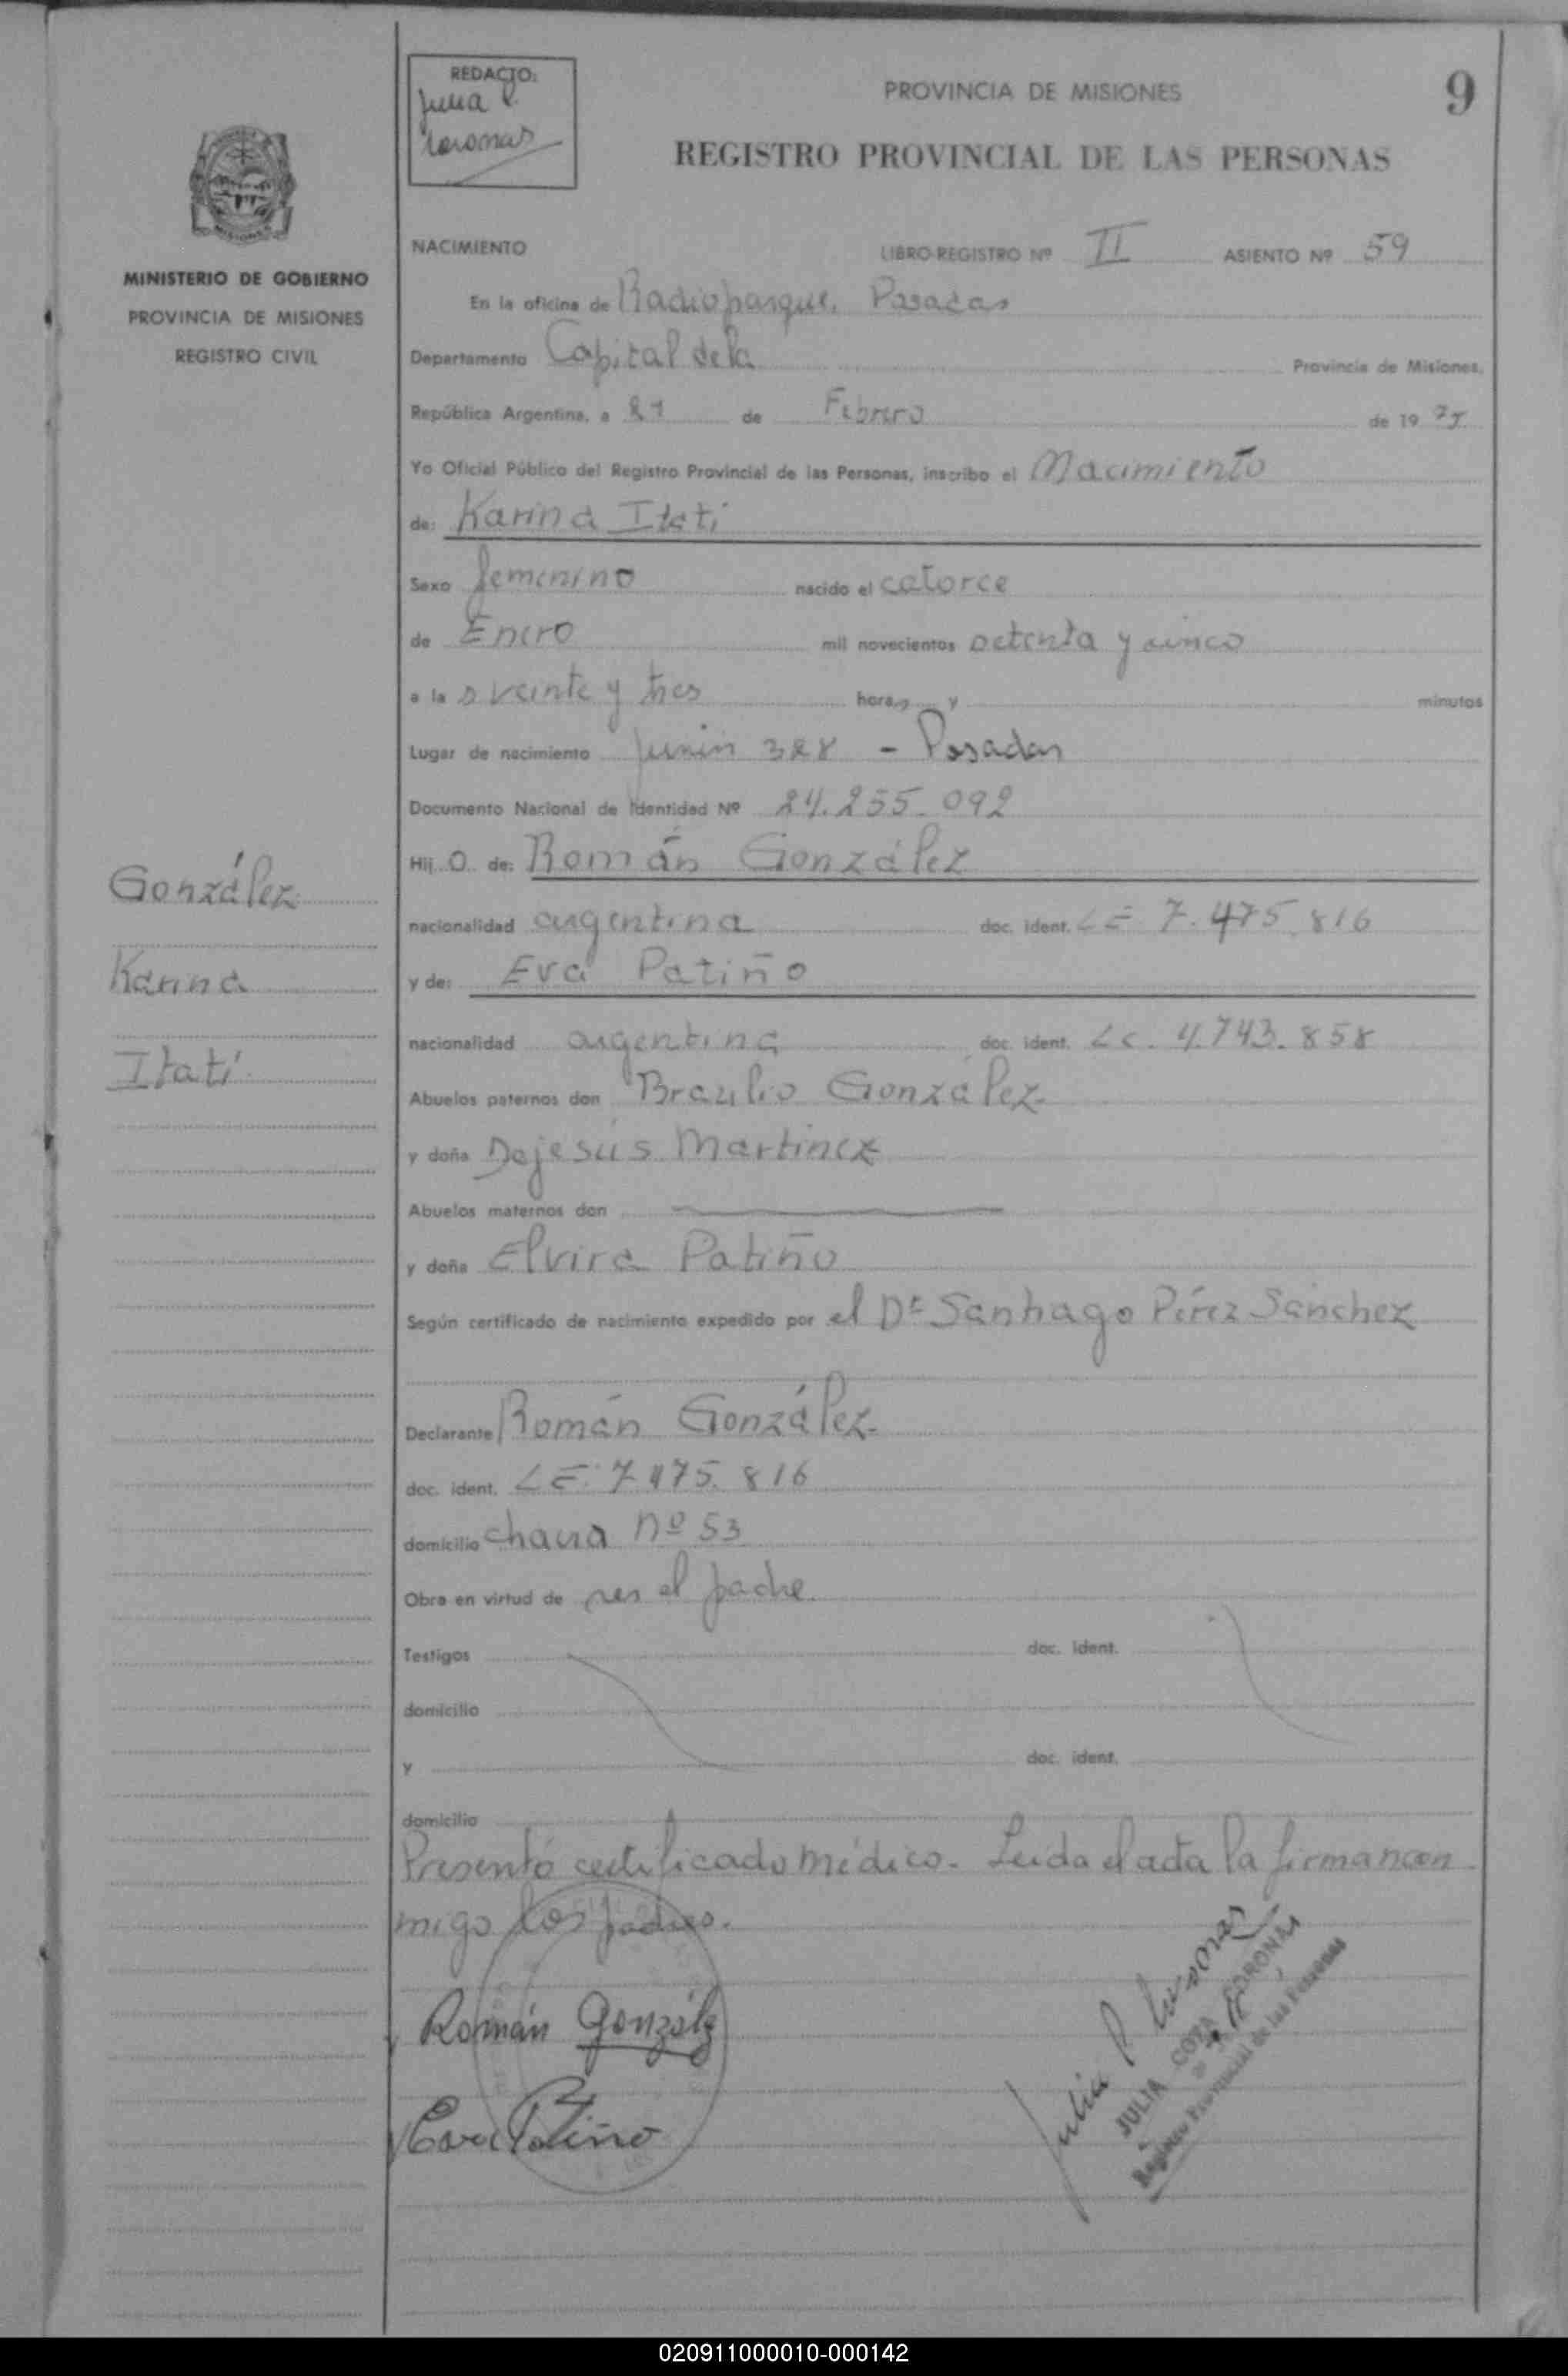 REDACTO:
Julia C.
Coronas
PROVINCIA DE MISIONES
9
REGISTRO PROVINCIAL DE LAS PERSONAS
MISIONES
MINISTERIO DE GOBIERNO
PROVINCIA DE MISIONES
REGISTRO CIVIL
NACIMIENTO LIBRO-REGISTRO Nº II ASIENTO Nº 59
En la oficina de Radioparque, Posadas
Departamento Capital de la Provincia de Misiones,
República Argentina, a 21 de Febrero de 19 75
Yo Oficial Público del Registro Provincial de las Personas, inscribo el Nacimiento
de: Karina Itati
Sexo femenino nacido el catorce
de Enero mil novecientos setenta y cinco
a la s veinte y tres horas y minutos
Lugar de nacimiento Junin 328 - Posadas
Documento Nacional de Identidad Nº 24.255.092
Hij O de: Román González
nacionalidad argentina doc. ident. LE 7.475.816
y de: Eva Patiño
nacionalidad argentina doc. ident. Lc. 4.743.858
Abuelos paternos don Braulio González
y doña Dejesús Martinez
Abuelos maternos don
y doña Elvira Patiño
Según certificado de nacimiento expedido por el Dr Santiago Pérez Sánchez
Declarante Román González
doc. ident. LE. 7.475.816
domicilio chacra nº 53
Obra en virtud de ser el padre
Testigos doc. ident.
domicilio
y doc. ident.
domicilio
Presentó certificado médico. Leida el acta la firman con
migo los padres.
Román González
Eva Patiño
Julia C. Coronas
JULIA CORONAS
Registro Provincial de las Personas
González
Karina
Itatí
020911000010-000142